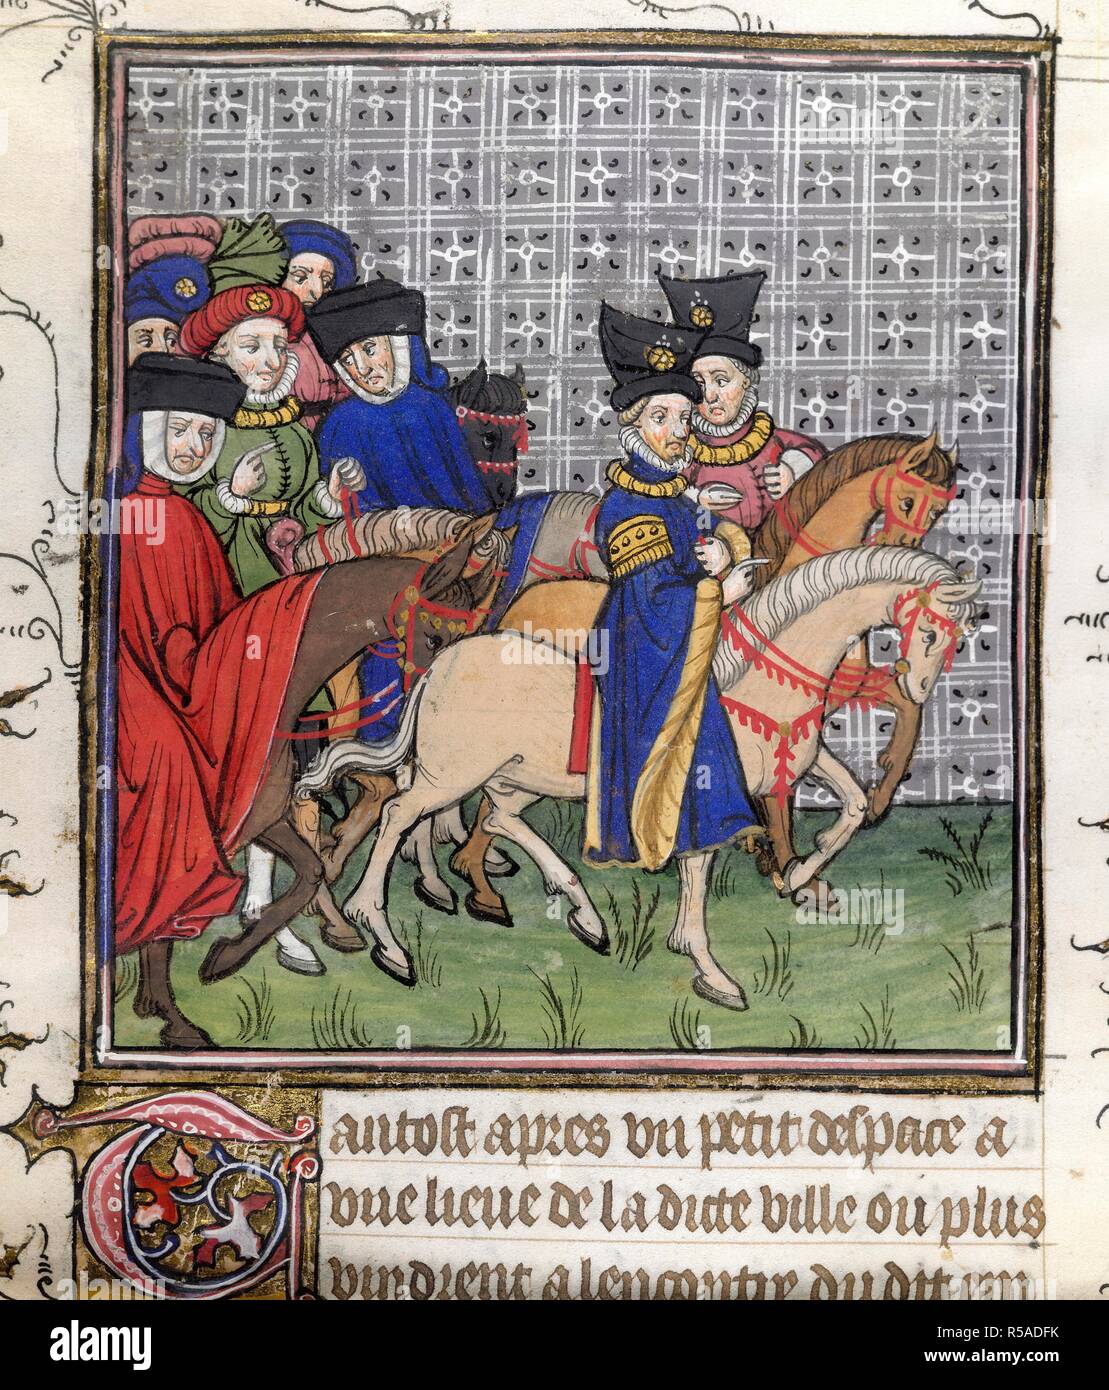 Tantost apres vn petit despace a
vne lieue de la dicte ville ou plus
vindrent a lencontre du dit em
alamy
alamy
Image ID: R5ADFK
www.alamy.com